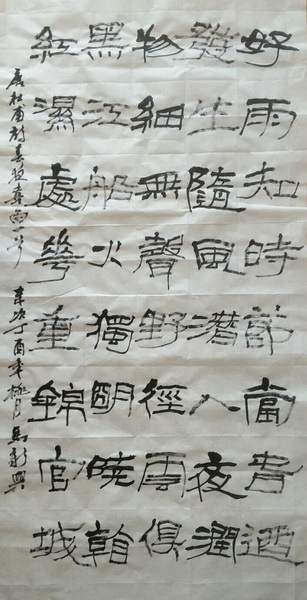 好雨知時節當旾迺
發生隨風潛入夜潤
物細無聲野徑雲俱
黑江船火獨明曉𥍉
紅濕處華重錦官城
唐杜甫詩春夜喜雨一首 歲次丁酉年 月 馬 興